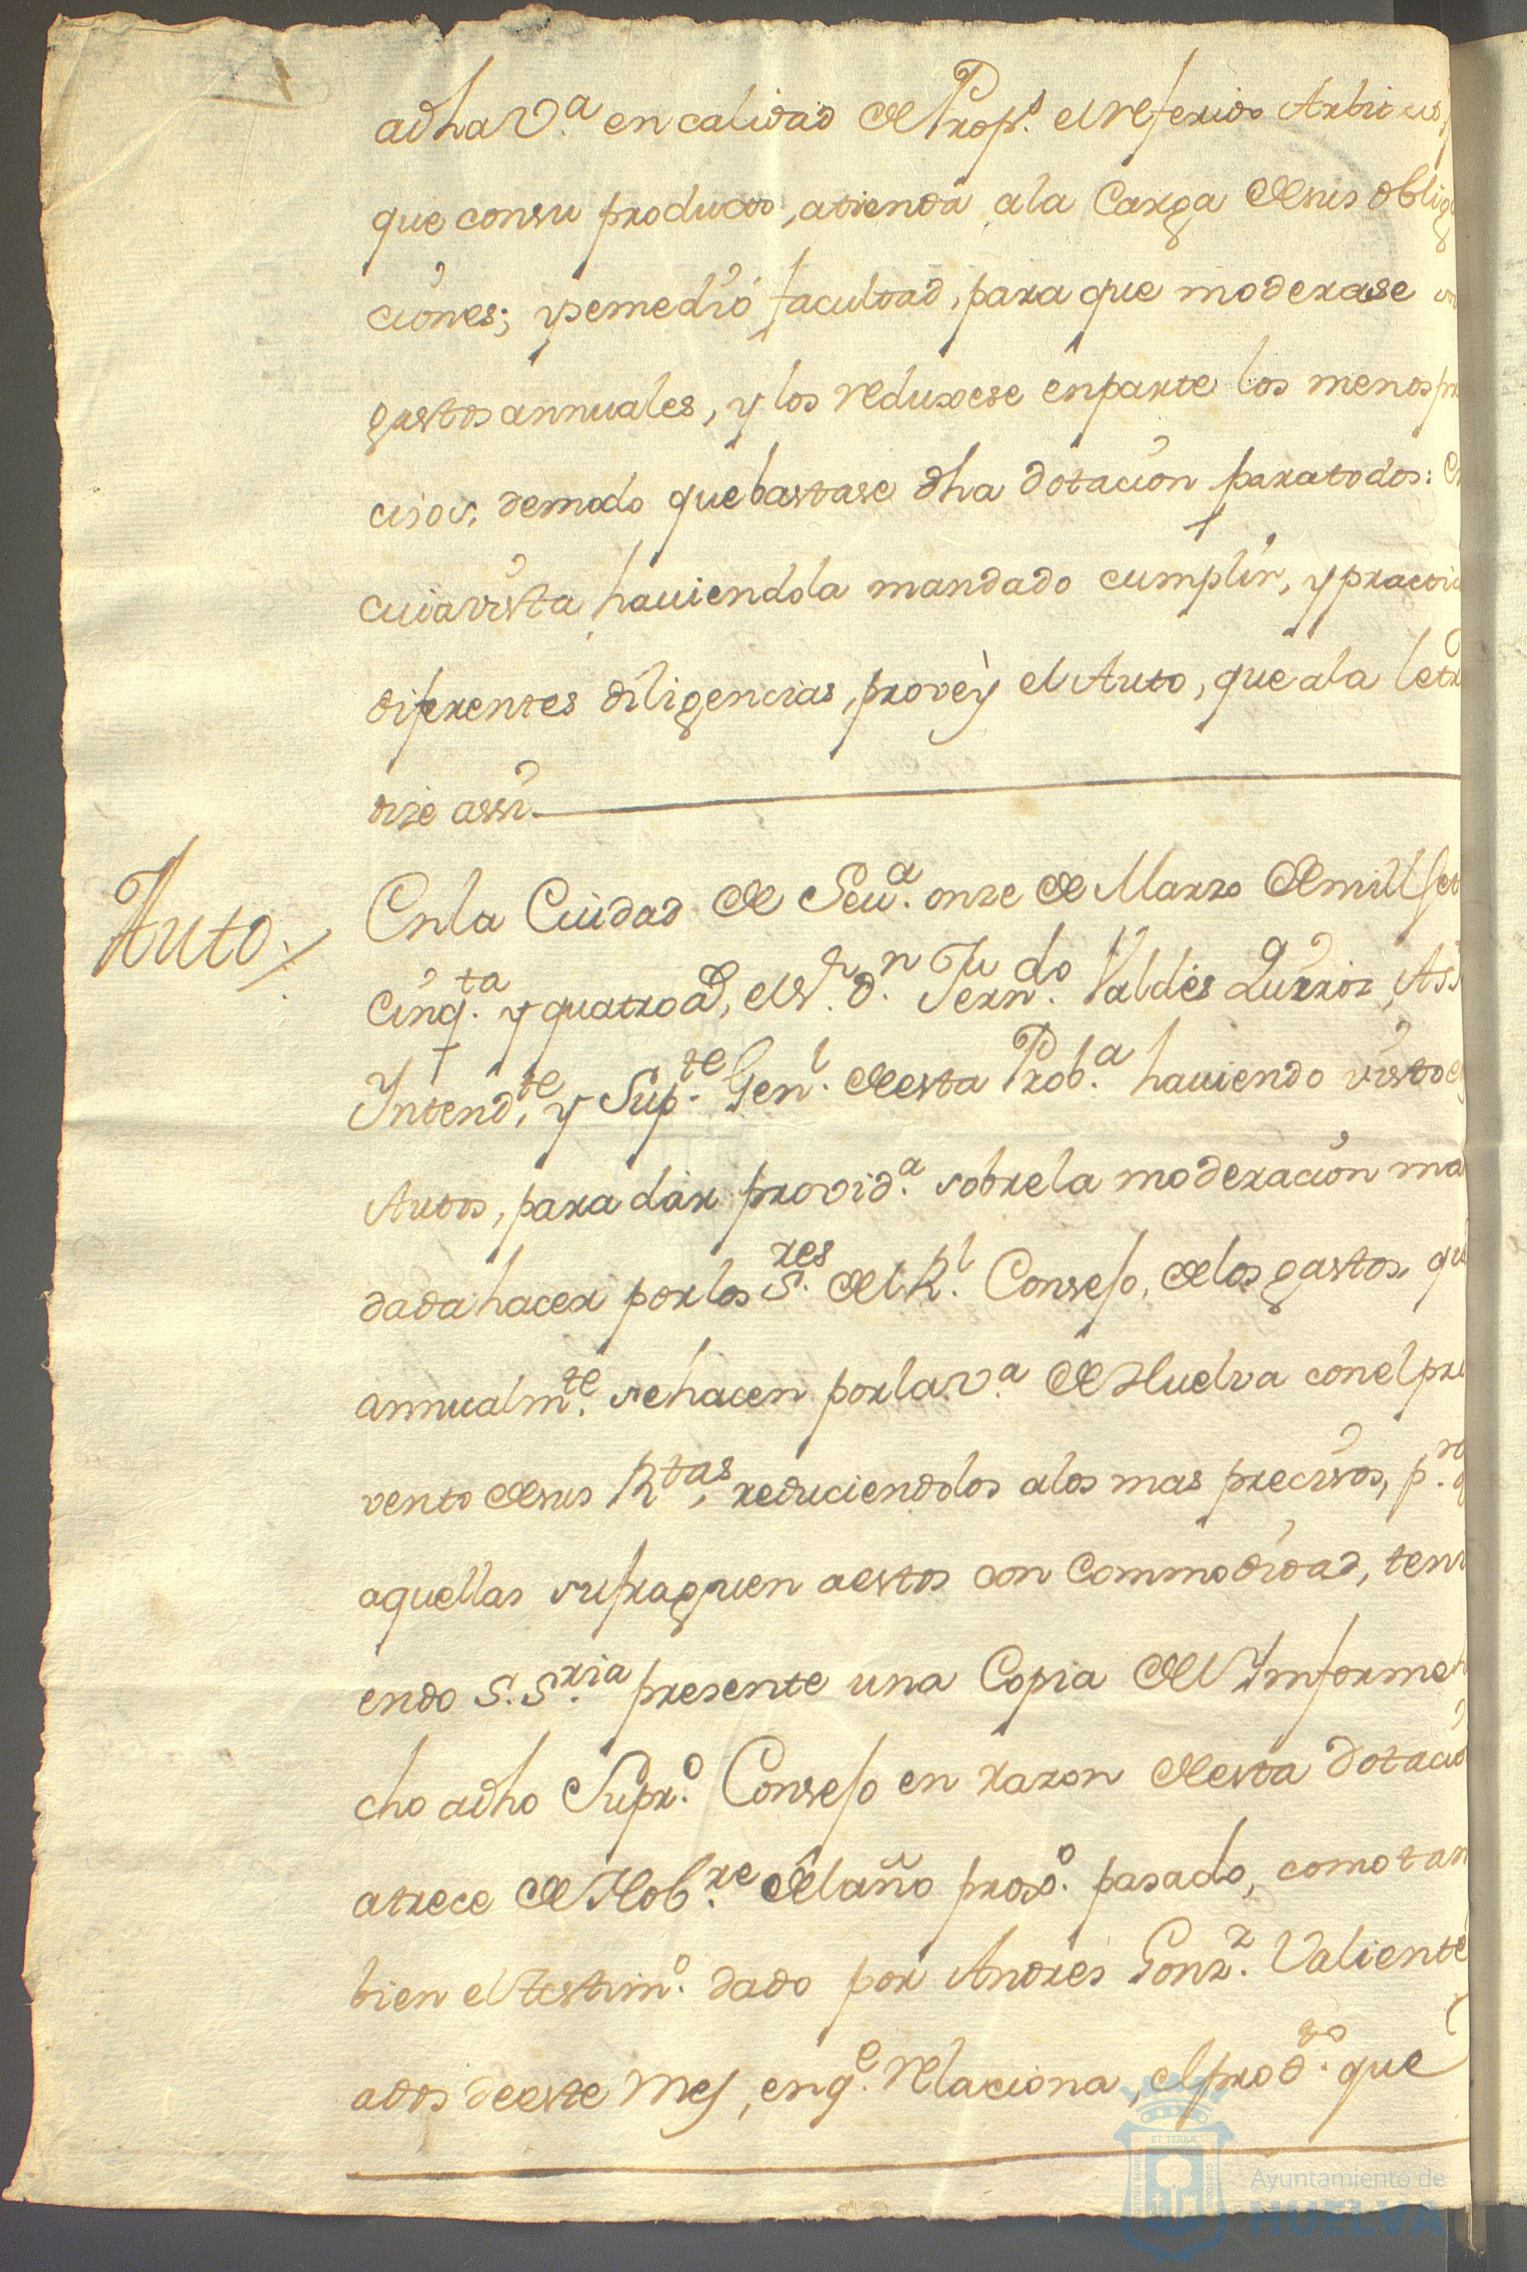 adha V.ª en calidad de Prop.s el referido Arbitrio,
que con su producto, atienda a la Carga de sus oblig
ciones; y se me dió facultad, para que moderase
gastos annuales, y los reduxese en parte los menos pre
cisos, de modo que bastase dha dotacion para todos: En
cuia vista haviendola mandado cumplir, y practic
diferentes diligencias, proveỳ el Auto, que a la letr
dize assi
Auto
En la Ciudad de Seu.ª onze de Marzo de mill set
cinq.ta y quatro a.s, el S.r D.n Fern.do Valdés Quirós, Ass
Intend.te, y Sup.te Gen.l de esta Prob.ª haviendo visto e
Autos, para dar provid.ª sobre la moderacion ma
dada hacer por los S.res del R.l Consejo, de los gastos, qu
annualm.te se hacen por la V.ª de Huelva con el pro
vento de sus R.tas, reduciendolos a los mas precisos, p.ª q
aquellas sufraguen a estos con Commodidad, teni
endo S. S.ria presente una Copia del Informe h
cho a dho Supr.o Consejo en razon de esta dotacio
a trece de Nob.re del año prox.o pasado, como tam
bien el testim.o dado por Andres Gonz.z Valiente
a dos de este Mes, en q.e relaciona, el prod.to que
ET TERRAE
Ayuntamiento de
HUELVA